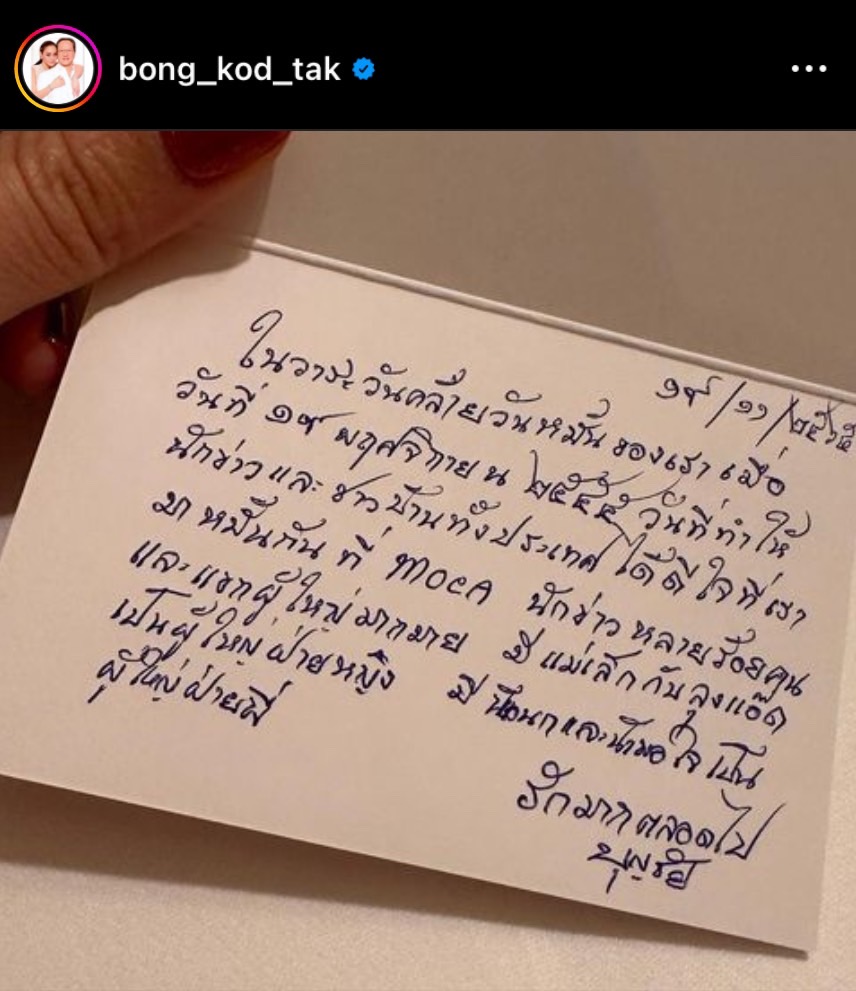 bong_kod_tak
๑๙/๑๑/๒๕๖๕
ในวาระวันคล้ายวันหมั้นของเราเมื่อ
วันที่ ๑๙ พฤศจิกายน ๒๕๕๕ วันที่ทำให้
นักข่าวและชาวบ้านทั้งประเทศได้ดีใจที่เรา
มาหมั้นกันที่ MOCA นักข่าวหลายร้อยคน
และแขกผู้ใหญ่มากมาย มีแม่เล็กกับลุงแอ๊ด
เป็นผู้ใหญ่ฝ่ายหญิง มี และน้าพอใจเป็น
ผู้ใหญ่ฝ่ายพี่
รักมากตลอดไป
บุญชัย